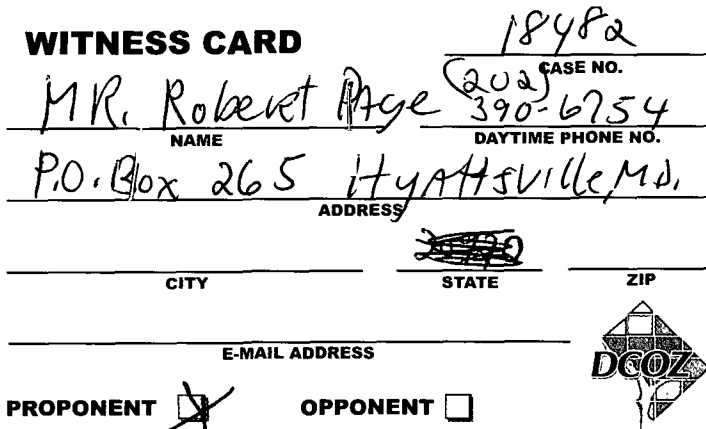 WITNESS CARD
18482
CASE NO.
MR. Roberet Page
(202) 390-6754
NAME
DAYTIME PHONE NO.
P.O. Box 265 HyAttsville, Md.
ADDRESS
CITY
STATE
ZIP
E-MAIL ADDRESS
DCOZ
PROPONENT
OPPONENT